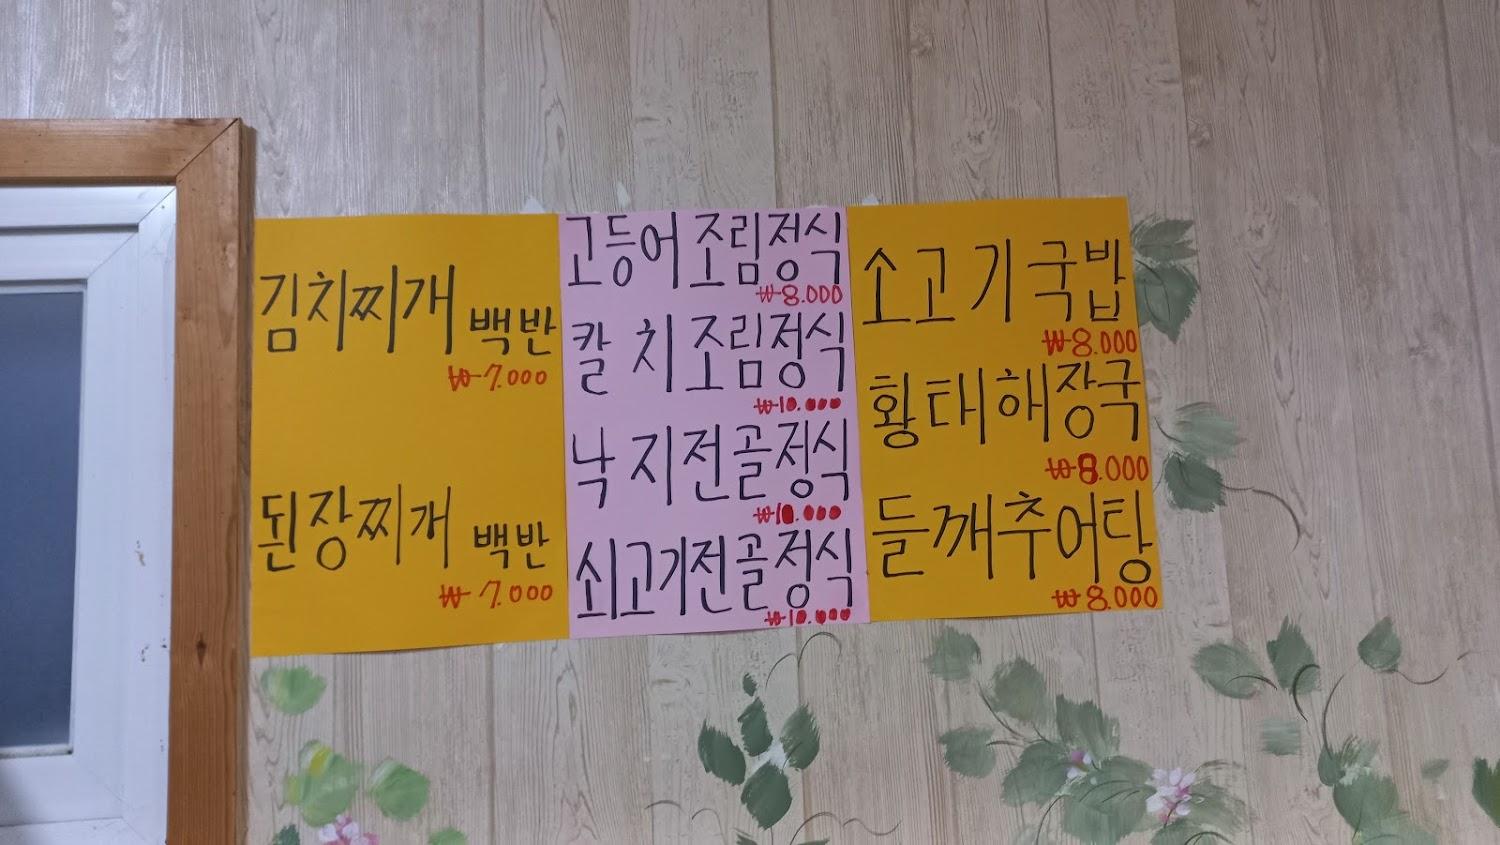 김치찌개 백반
₩7.000
된장찌개 백반
₩7.000
고등어조림정식
₩8.000
칼치조림정식
₩10.000
낙지전골정식
₩10.000
쇠고기전골정식
₩10.000
소고기국밥
₩8.000
황태해장국
₩8.000
들깨추어탕
₩8.000